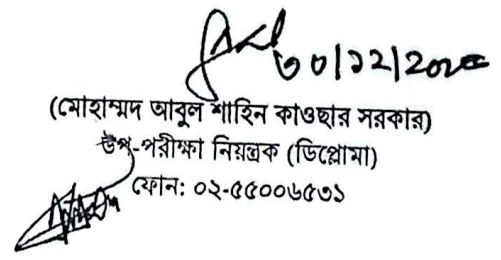 ৩০/১২/২০২৫
(মোহাম্মদ আবুল শাহিন কাওছার সরকার)
উপ-পরীক্ষা নিয়ন্ত্রক (ডিপ্লোমা)
ফোন: ০২-৫৫০০৬৫৩১